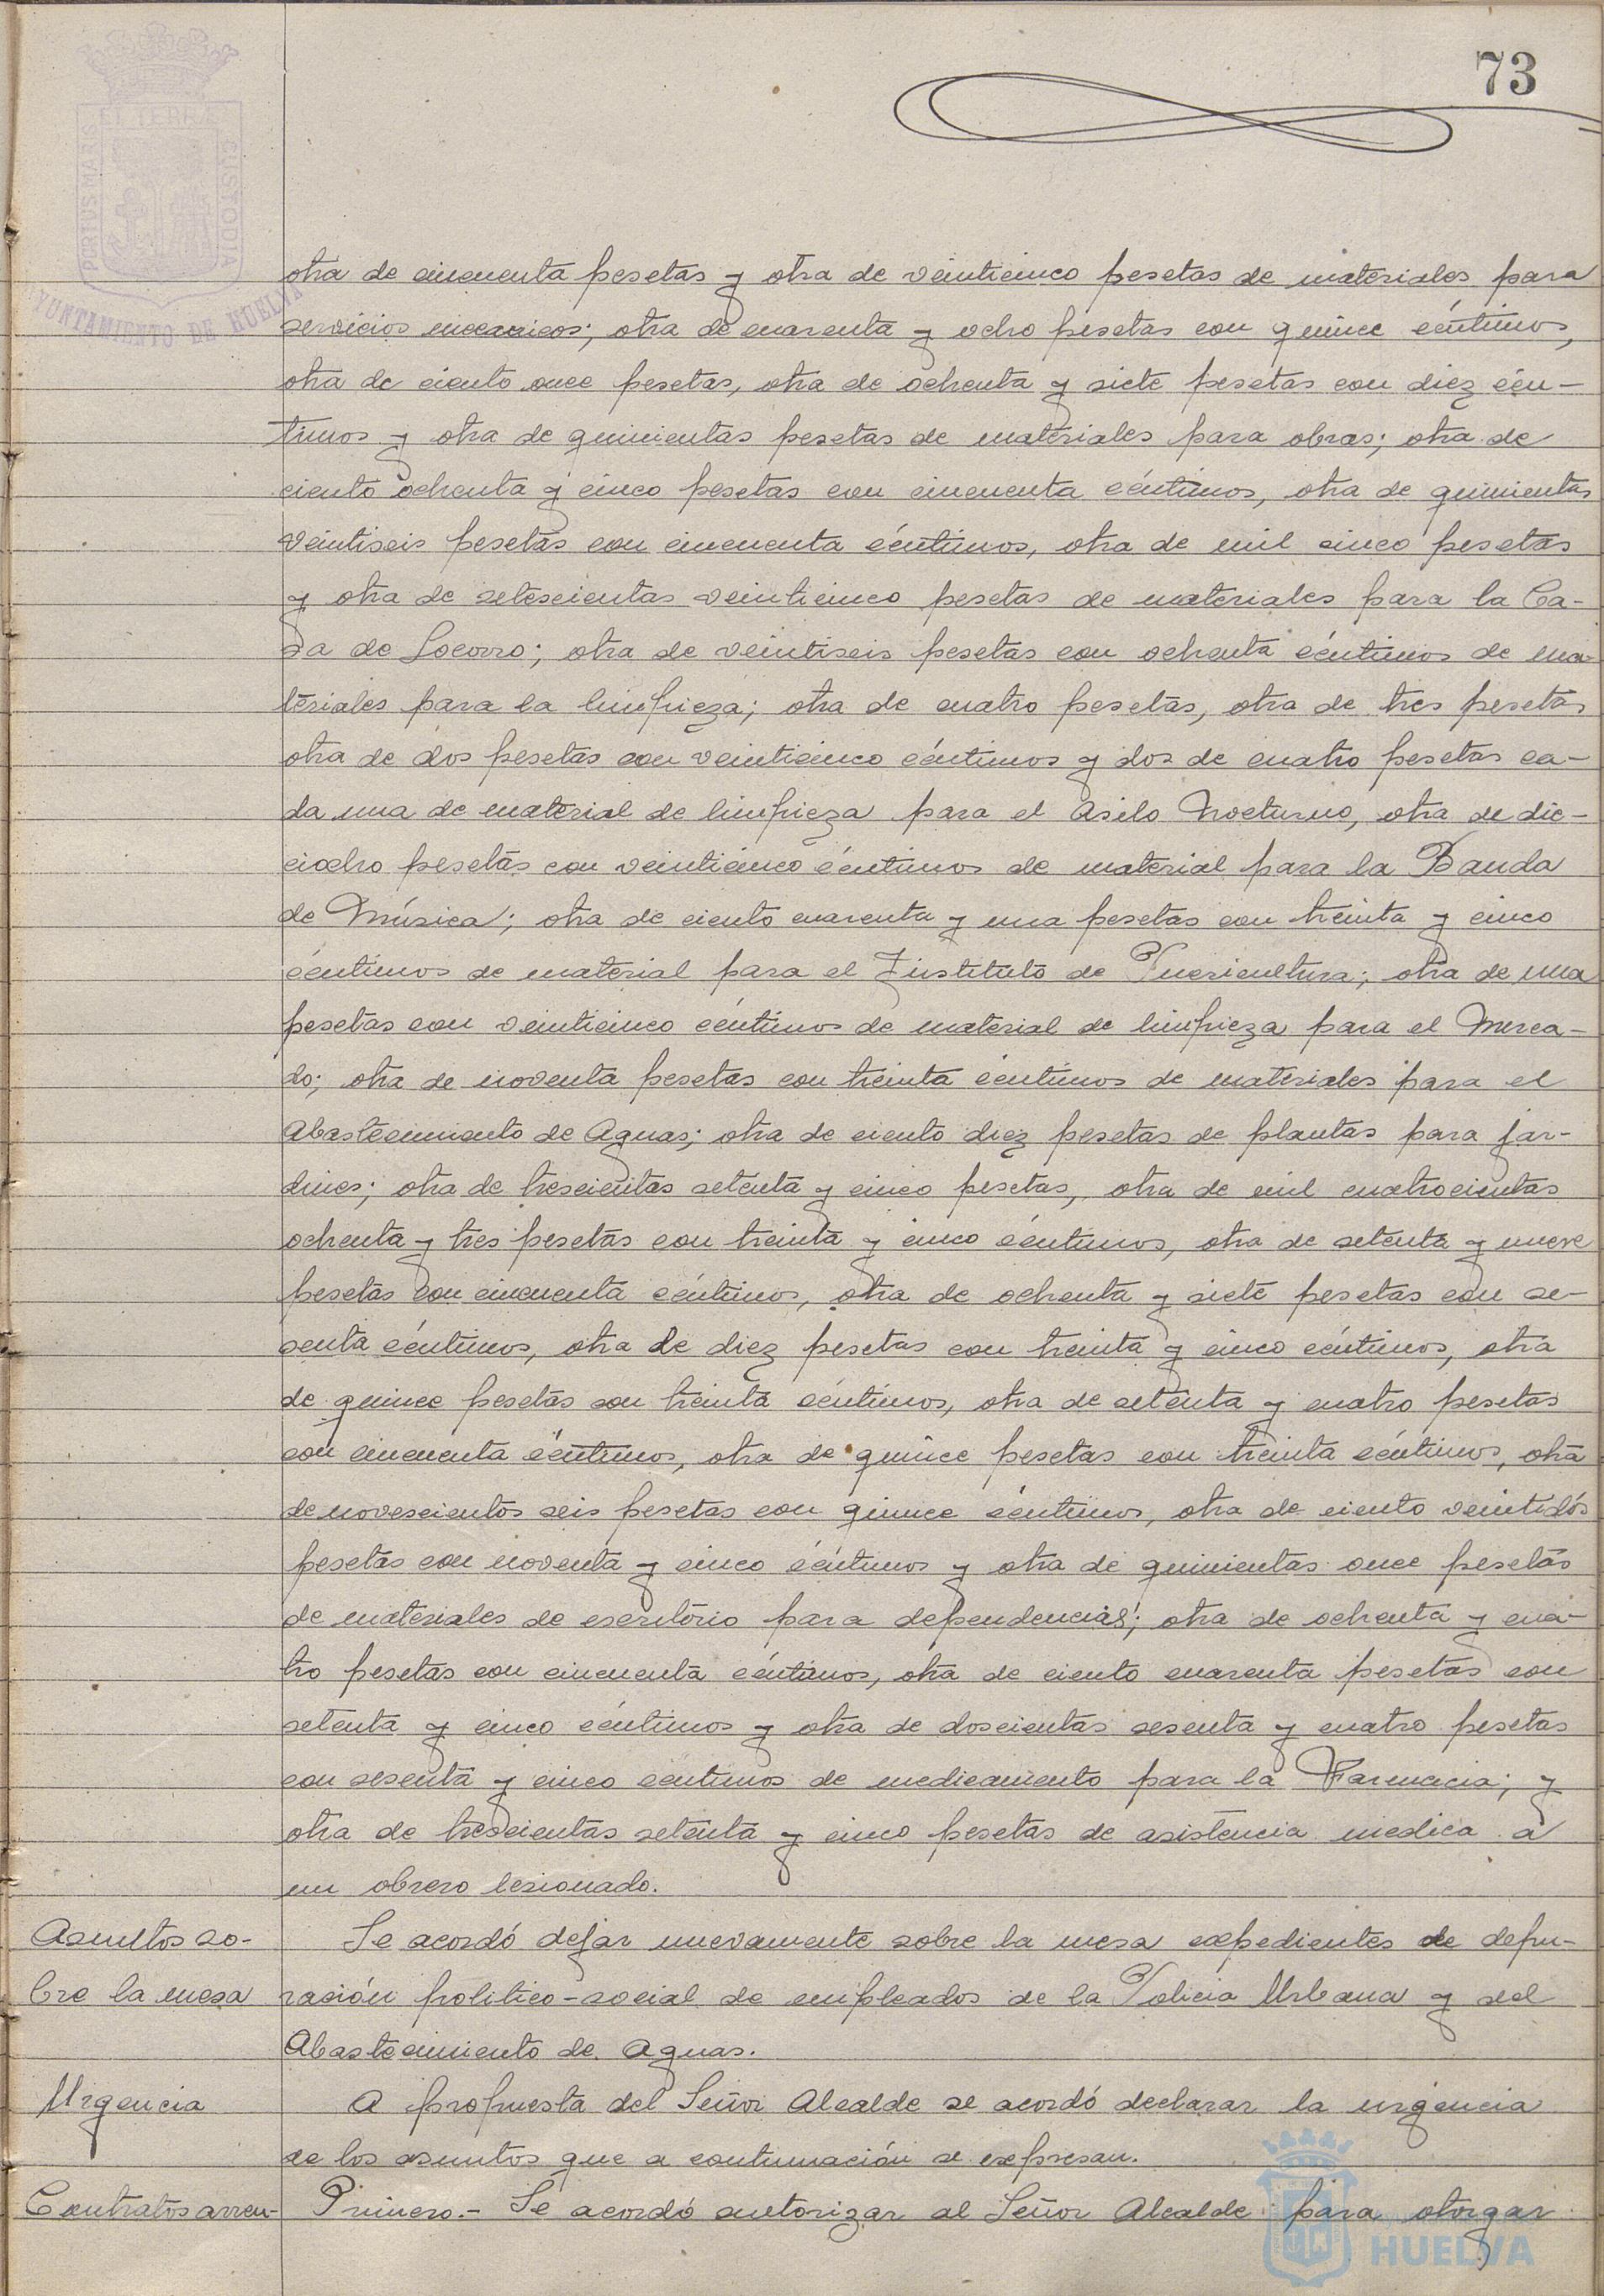 73
EL TERRÆ
PORTUS MARIS
CUSTODIA
AYUNTAMIENTO DE HUELVA
otra de cincuenta pesetas y otra de veinticinco pesetas de materiales para
servicios mecanicos; otra de cuarenta y ocho pesetas con quince céntimos,
otra de ciento once pesetas, otra de ochenta y siete pesetas con diez cén-
timos y otra de quinientas pesetas de materiales para obras; otra de
ciento ochenta y cinco pesetas con cincuenta céntimos, otra de quinientas
veintiseis pesetas con cincuenta céntimos, otra de mil cinco pesetas
y otra de setescientas veinticinco pesetas de materiales para la Ca-
sa de Socorro; otra de veintiseis pesetas con ochenta céntimos de ma-
teriales para la limpieza; otra de cuatro pesetas, otra de tres pesetas
otra de dos pesetas con veinticinco céntimos y dos de cuatro pesetas ca-
da una de material de limpieza para el Asilo Nocturno, otra de die-
ciocho pesetas con veinticinco céntimos de material para la Banda
de Música; otra de ciento cuarenta y una pesetas con treinta y cinco
céntimos de material para el Instituto de Puericultura; otra de una
pesetas con veinticinco céntimos de material de limpieza para el Merca-
do; otra de noventa pesetas con treinta céntimos de materiales para el
Abastecimiento de Aguas; otra de ciento diez pesetas de plantas para jar-
dines; otra de trescientas setenta y cinco pesetas, otra de mil cuatrocientas
ochenta y tres pesetas con treinta y cinco céntimos, otra de setenta y nueve
pesetas con cincuenta céntimos, otra de ochenta y siete pesetas con se-
senta céntimos, otra de diez pesetas con treinta y cinco céntimos, otra
de quince pesetas con treinta céntimos, otra de setenta y cuatro pesetas
con cincuenta céntimos, otra de quince pesetas con treinta céntimos, otra
de novescientos seis pesetas con quince céntimos, otra de ciento veintidós
pesetas con noventa y cinco céntimos y otra de quinientas once pesetas
de materiales de escritorio para dependencias; otra de ochenta y cua-
tro pesetas con cincuenta céntimos, otra de ciento cuarenta pesetas con
setenta y cinco céntimos y otra de doscientas sesenta y cuatro pesetas
con sesenta y cinco céntimos de medicamiento para la Farmacia; y
otra de trescientas setenta y cinco pesetas de asistencia medica a
un obrero lesionado.
Asuntos so-
bre la mesa
Se acordó dejar nuevamente sobre la mesa expedientes de depu-
ración politico-social de empleados de la Policia Urbana y del
Abastecimiento de Aguas.
Urgencia
A propuesta del Señor Alcalde se acordó declarar la urgencia
de los asuntos que a continuación se expresan.
Contratos arren-
Primero.- Se acordó autorizar al Señor Alcalde para otorgar
HUELVA